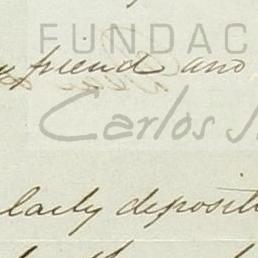 FUNDAC
friend and
Carlos J.
larly deposit